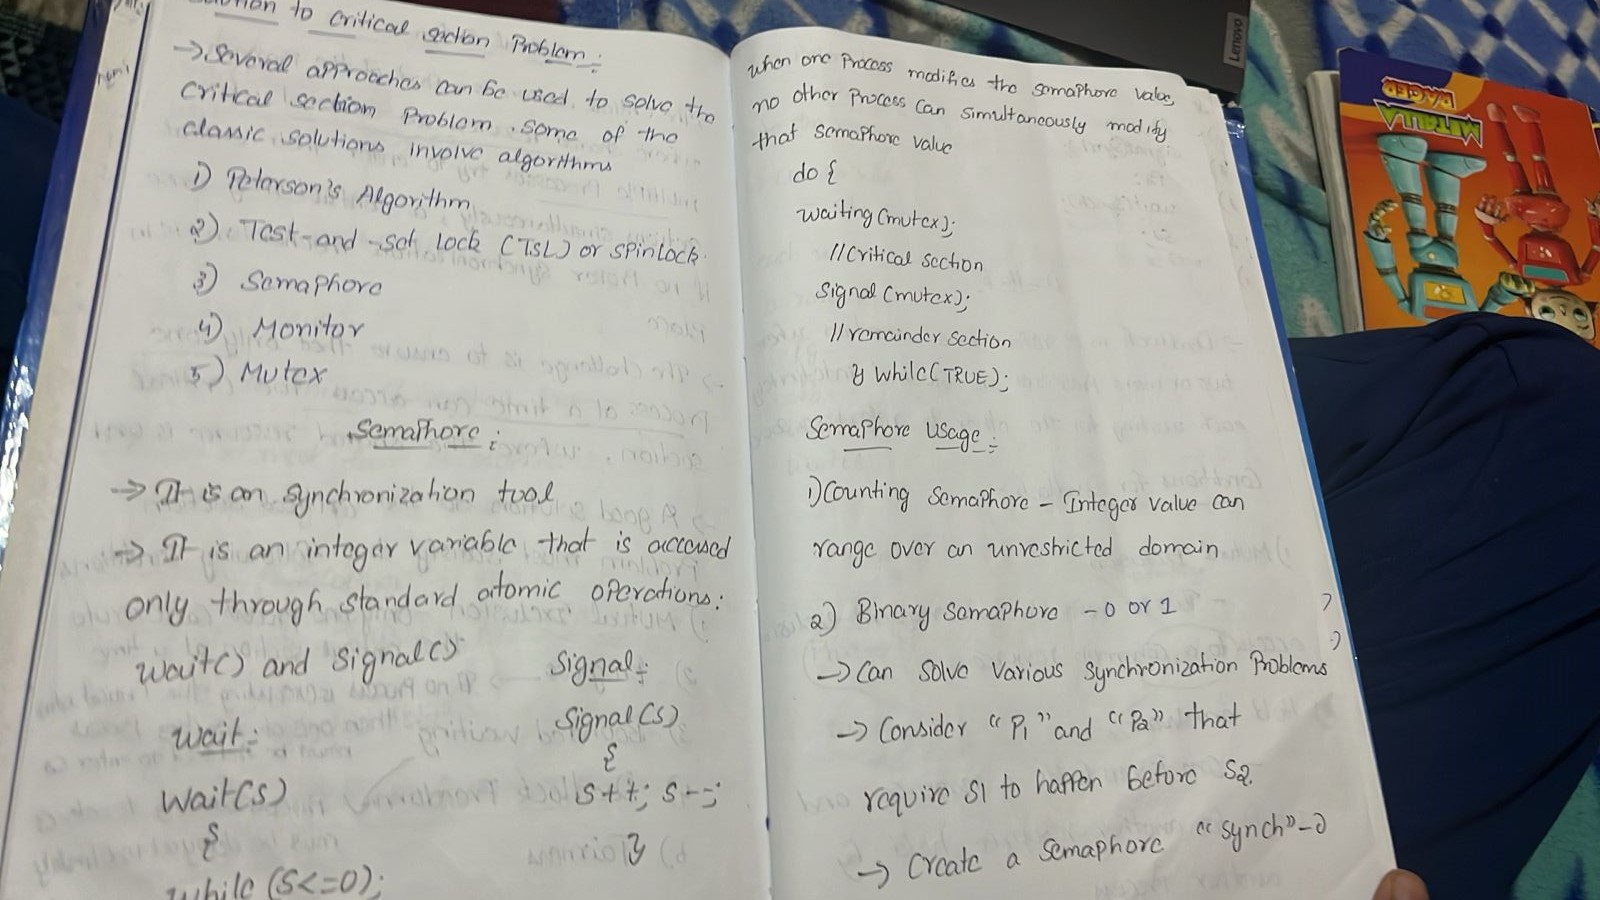 to critical section Problem:
→ Several approaches can be used to solve the
critical section Problem. Some of the
classic solutions involve algorithms
1) Peterson's Algorithm
2) Test-and-set lock (TSL) or spinlock.
3) Semaphore
4) Monitor
5) Mutex
Semaphore:
→ It is an synchronization tool
→ It is an integer variable that is accessed
only through standard atomic operations:
wait() and signal()
Wait:
wait(s)
{
while (S<=0);
Signal:
Signal(s)
{
s++; s--;
}
when one Process modifies the semaphore value,
no other Process can simultaneously modify
that semaphore value
do {
waiting (mutex);
//critical section
signal (mutex);
//remainder section
} while (TRUE);
Semaphore usage:
1) Counting semaphore - Integer value can
range over an unrestricted domain
2) Binary semaphore - 0 or 1
→ Can solve various synchronization Problems
→ Consider "P1" and "P2" that
require S1 to happen before S2.
→ Create a semaphore "synch"-0
Lenovo
METALLA
RACER